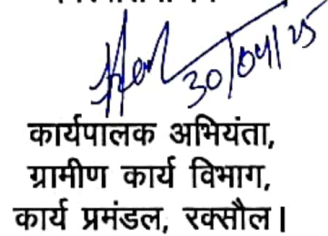 30/04/25
कार्यपालक अभियंता,
ग्रामीण कार्य विभाग,
कार्य प्रमंडल, रक्सौल।